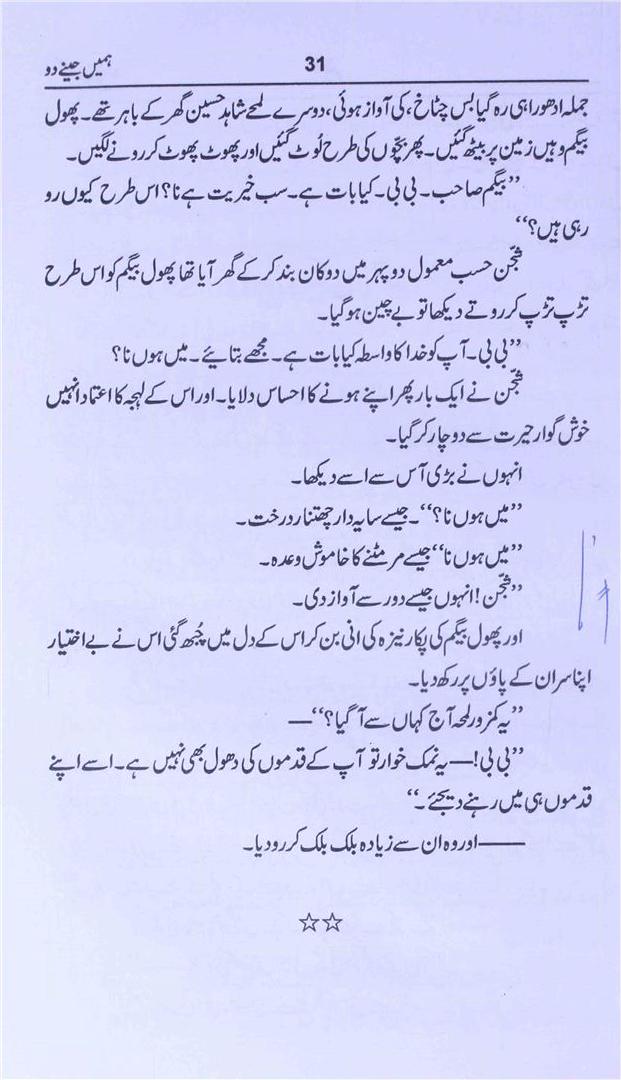 ہمیں جینے دو
31
جملہ ادھورا ہی رہ گیا بس چٹاخ، کی آواز ہوئی، دوسرے لمحے شاہد حسین گھر کے باہر تھے۔ پھول
بیگم وہیں زمین پر بیٹھ گئیں۔ پھر بچّوں کی طرح لُوٹ گئیں اور پھوٹ پھوٹ کر رونے لگیں۔
”بیگم صاحب۔ بی بی۔ کیا بات ہے۔ سب خیریت ہے نا؟ اس طرح کیوں رو
رہی ہیں؟“
شجّن حسب معمول دوپہر میں دوکان بند کر کے گھر آیا تھا پھول بیگم کو اس طرح
تڑپ تڑپ کر روتے دیکھا تو بے چین ہو گیا۔
”بی بی۔ آپ کو خدا کا واسطہ کیا بات ہے۔ مجھے بتائیے۔ میں ہوں نا؟
شجّن نے ایک بار پھر اپنے ہونے کا احساس دلایا۔ اور اس کے لہجہ کا اعتماد انہیں
خوش گوار حیرت سے دوچار کر گیا۔
انہوں نے بڑی آس سے اسے دیکھا۔
”میں ہوں نا؟“۔ جیسے سایہ دار چھتنار درخت۔
”میں ہوں نا“ جیسے مر مٹنے کا خاموش وعدہ۔
”شجّن! انہوں جیسے دور سے آواز دی۔
اور پھول بیگم کی پکار نیزہ کی انی بن کر اس کے دل میں چُبھ گئی اس نے بے اختیار
اپنا سر ان کے پاؤں پر رکھ دیا۔
”یہ کمزور لمحہ آج کہاں سے آ گیا؟“—
”بی بی!— یہ نمک خوار تو آپ کے قدموں کی دھول بھی نہیں ہے۔ اسے اپنے
قدموں ہی میں رہنے دیجئے۔“
—— اور وہ ان سے زیادہ بلک بلک کر رو دیا۔
☆☆